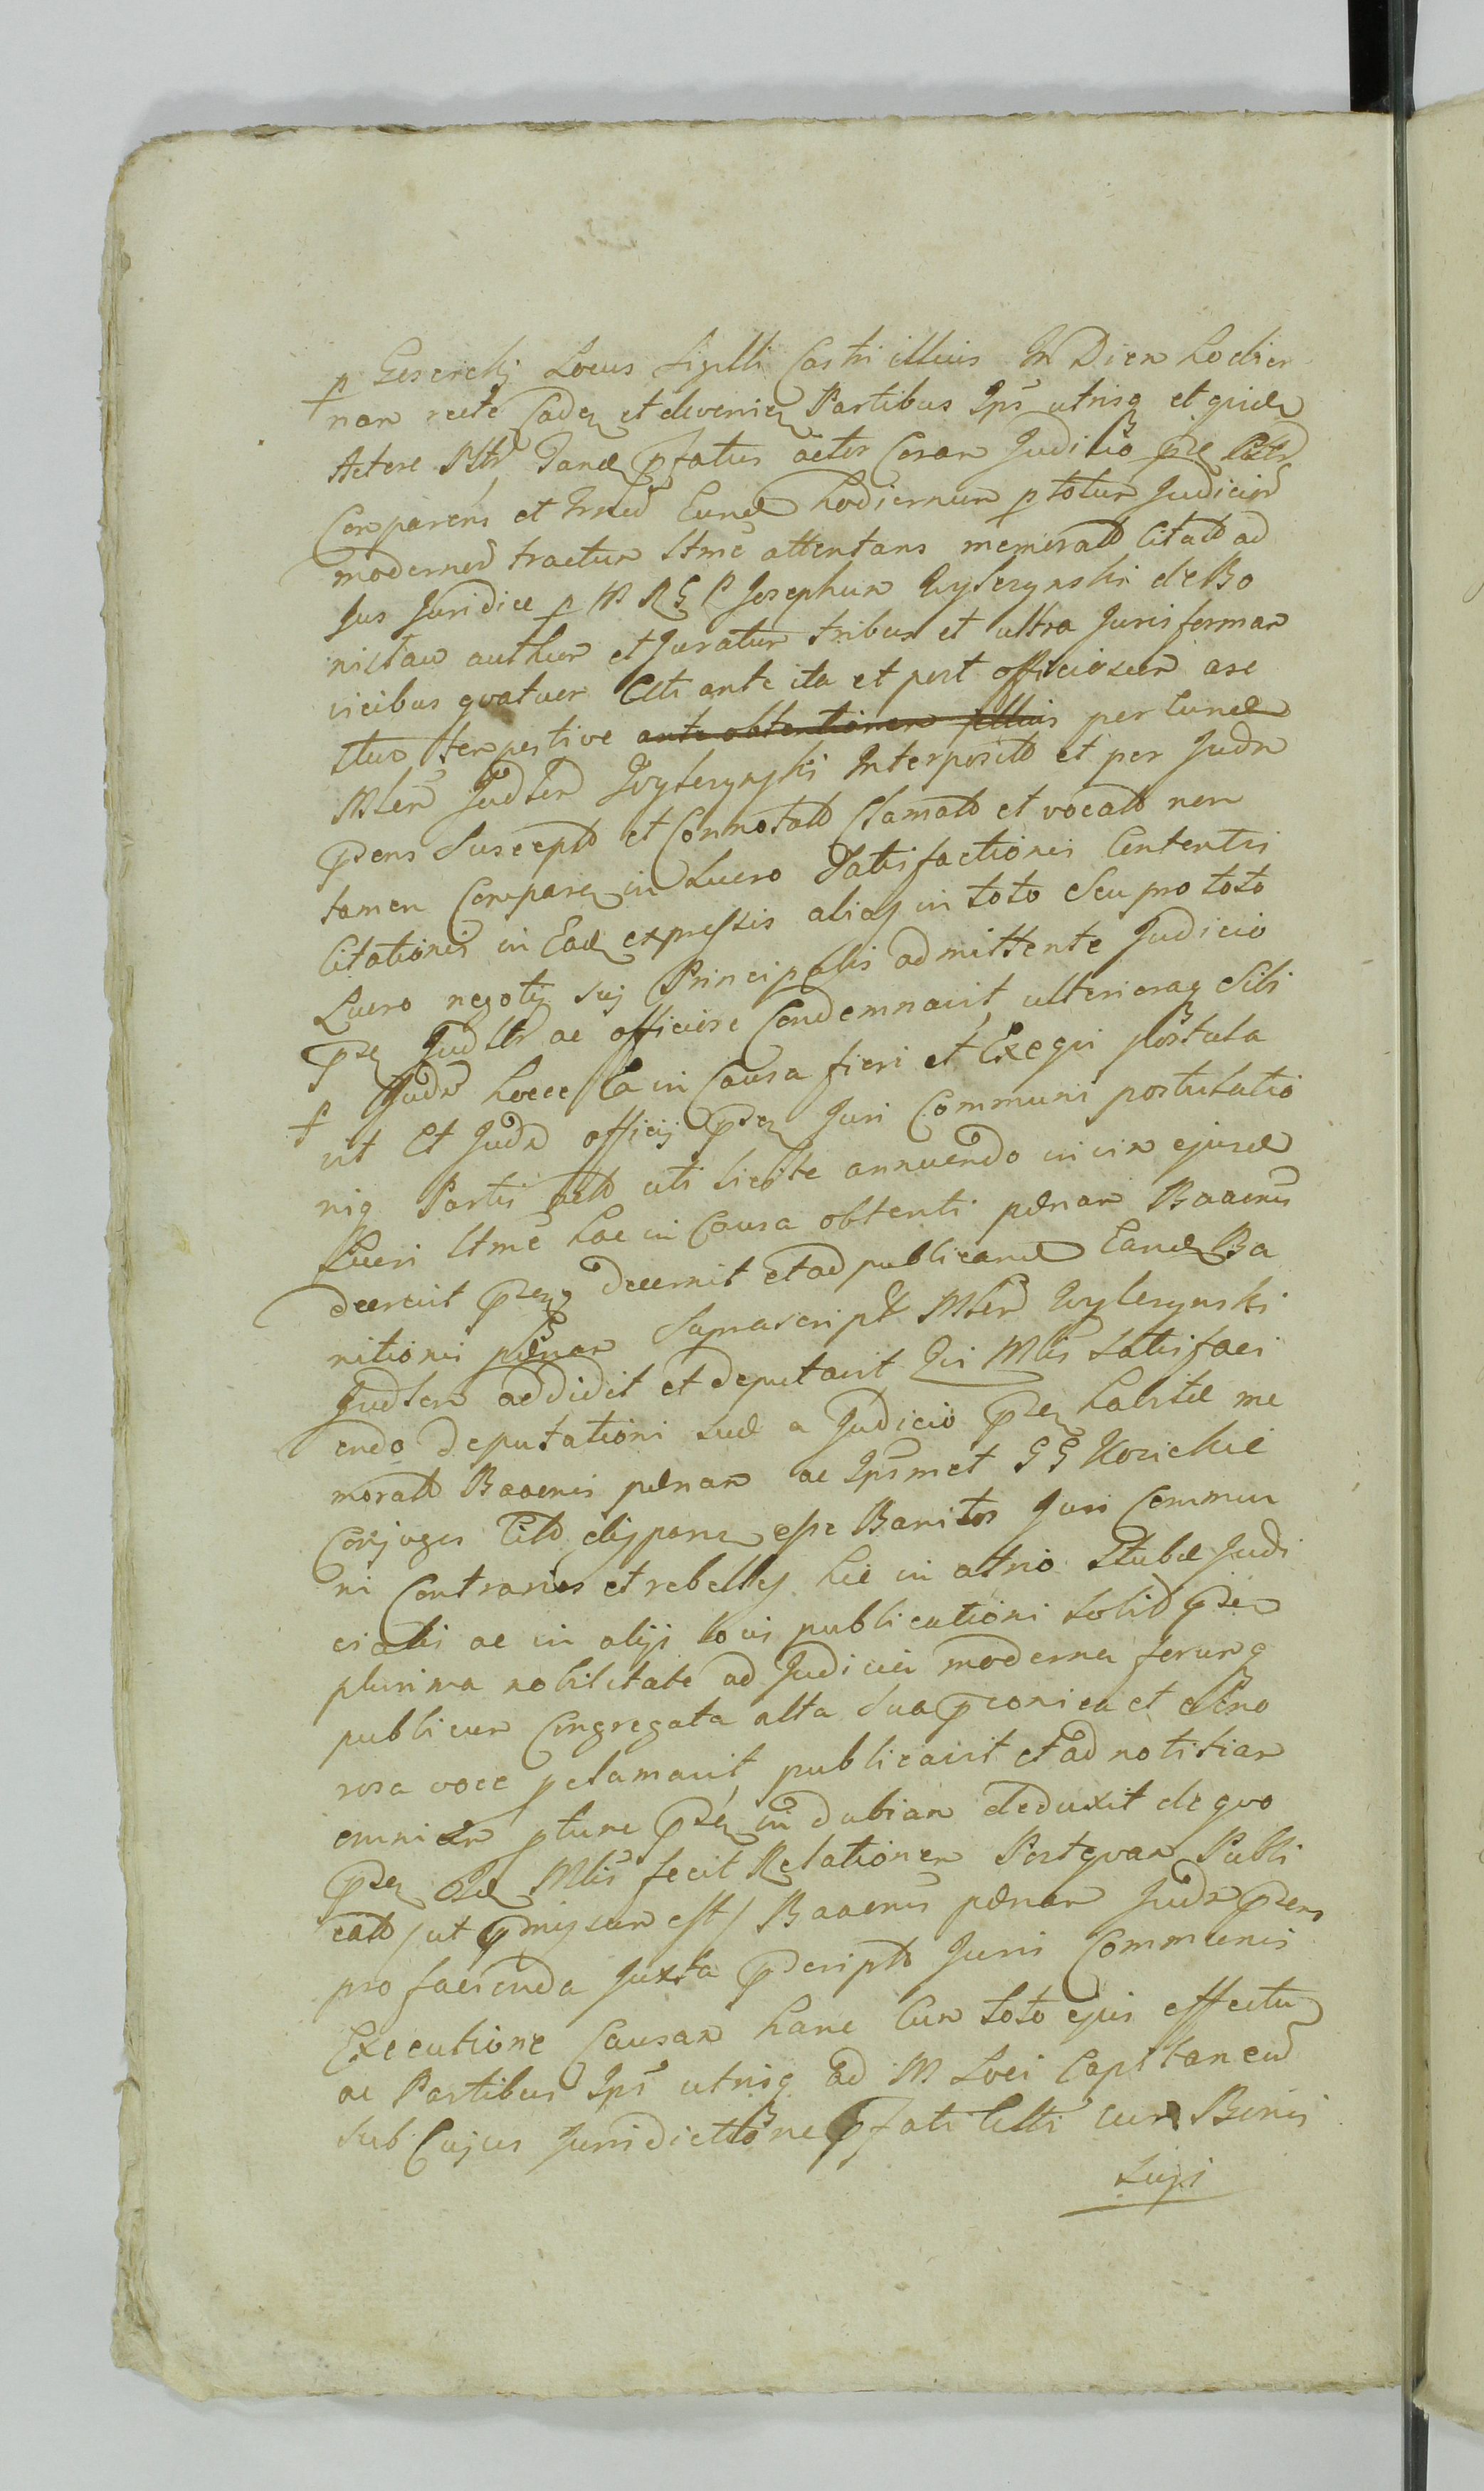 Locus Sigilli Castri illius In Diem hodier
nam recte Caden et devenien Partibus Ips utrisq et quidem
Actore Tand pfatus actor Coram Judicio
Comparens et Eund hodiernum p totum Judiciord
modernord tractum ltme attentans memoratt Citatt ad
Jus Juridice p M R G P Josephum Wyleszynski de Bo
authum et Juratum tribus et ultra Juris formam
vicibus quatuor ante ita et post
stuo tempestive ante obtentionem illius per Eund
Mlem Judlem Wyleszynski Interposito et per Judm
psens Suscept et Connotatt Clamatt et vocatt non
tamen Comparen in Lucro Satisfactionis Contentis
Citationis in Ead expressis alias in toto Seu pro toto
Lucro negotij sui Principalis admittente Judicio
psen Judlr ac officiose Condemnavit, ulteriorag Sibi
p Judm hocce Ea in Causa fieri et Exequi postula
vit Et Judm officij psen Juri Communi postulatio
niq Partis actt uti licite annuendo in vim ejusd
Lucri ltme hac in Causa obtenti pænam Baaenis
decrevit psenq decernit et ad publicand Eand Ba
nitionis pænam Suprascript Mlem Wyleszynski
Judlem addidit et deputavit Qui Mlis Satisfaci
endo deputationi suæ a Judicio psen habitæ me
moratt Baaenis pænam ac Ipsmet G G Kozickie
Conjuges Citt esse Banitos Juri Commu
ni Contrarios et rebelles hic in atrio Stubæ Judi
cialis ac in alijs locis publicationi solit psen
plurima nobilitate ad Judicia moderna forumq
publicum Congregata alta Sua pconica et Sono
rosa voce pclamavit, publicavit et ad notitiam
omnium ptunc psen in dubiam deduxit de quo
psen Mlis fecit Relationem Postquam Publi
catt /ut pmissum est/ Baaenis pænam Judm psens
pro facienda Juxta pscript Juris Communis
Executione Causam hanc Cum toto ejus effectu
ac Partibus Ips utrisq ad M Loci Capitaneud
sub Cujus Jurisdictione pfati Citti cum Bonis
Suis